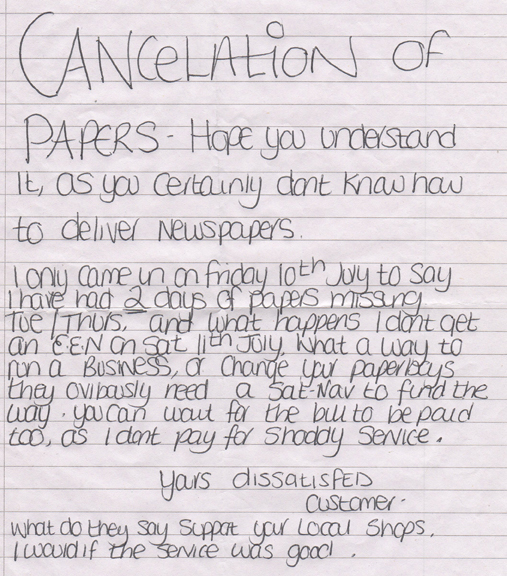 CANCELATION OF
PAPERS - Hope you understand
it, as you certainly dont know how
to deliver Newspapers.
I only came in on friday 10th July to say
I have had 2 days of papers missing
Tue/Thurs, and what happens I dont get
an E.E.N on Sat 11th July. What a way to
run a Business, or change your paperboys
they ovibously need a Sat-Nav to find the
way. you can wait for the bill to be paid
too, as I dont pay for Shoddy Service.
yours dissatisfied
customer.
what do they say support your Local Shops.
I would if the service was good.